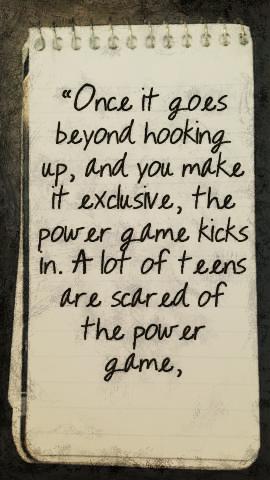 “Once it goes
beyond hooking
up, and you make
it exclusive, the
power game kicks
in. A lot of teens
are scared of
the power
game,